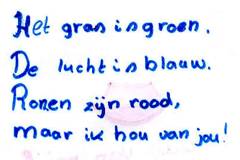 Het gras is groen.
De lucht is blauw.
Rozen zijn rood,
maar ik hou van jou!